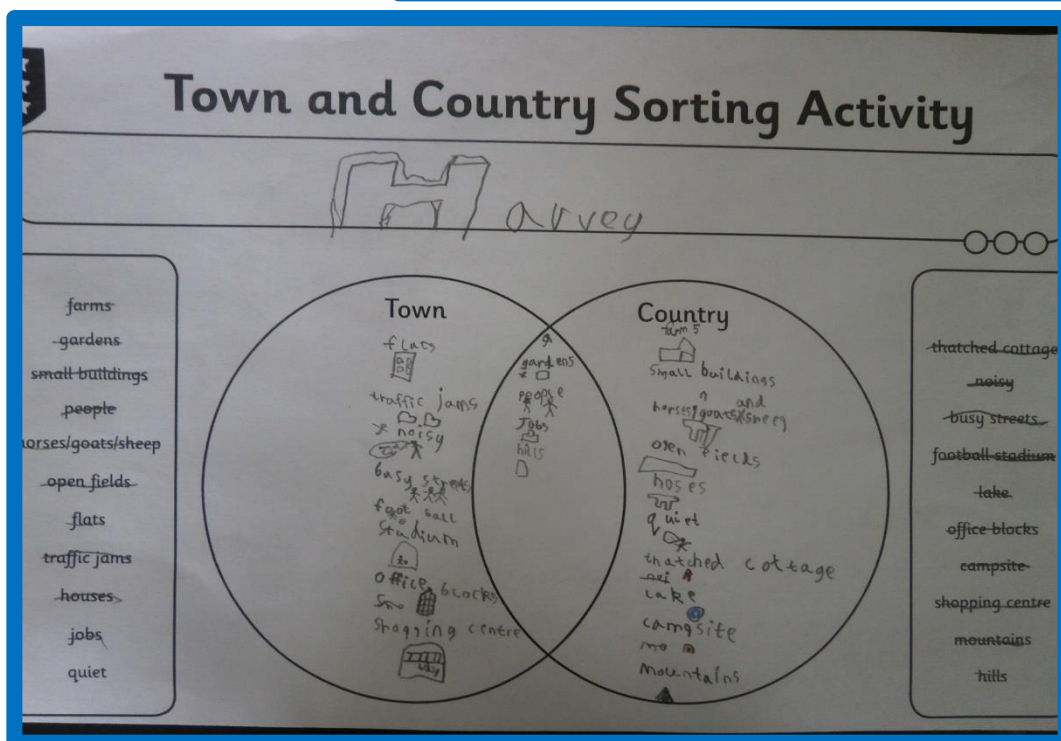 Town and Country Sorting Activity
Harvey
farms
gardens
small buildings
people
horses/goats/sheep
open fields
flats
traffic jams
houses
jobs
quiet
Town
flats
traffic jams
noisy
busy streets
foot ball
stadium
office blocks
Smo
shopping centre
gardens
people
Jobs
hills
Country
farms
small buildings
and
horses/goats/sheep
open fields
hoses
quiet
thatched cottage
Lake
campsite
mo
mountains
thatched cottage
noisy
busy streets
football stadium
lake
office blocks
campsite
shopping centre
mountains
hills